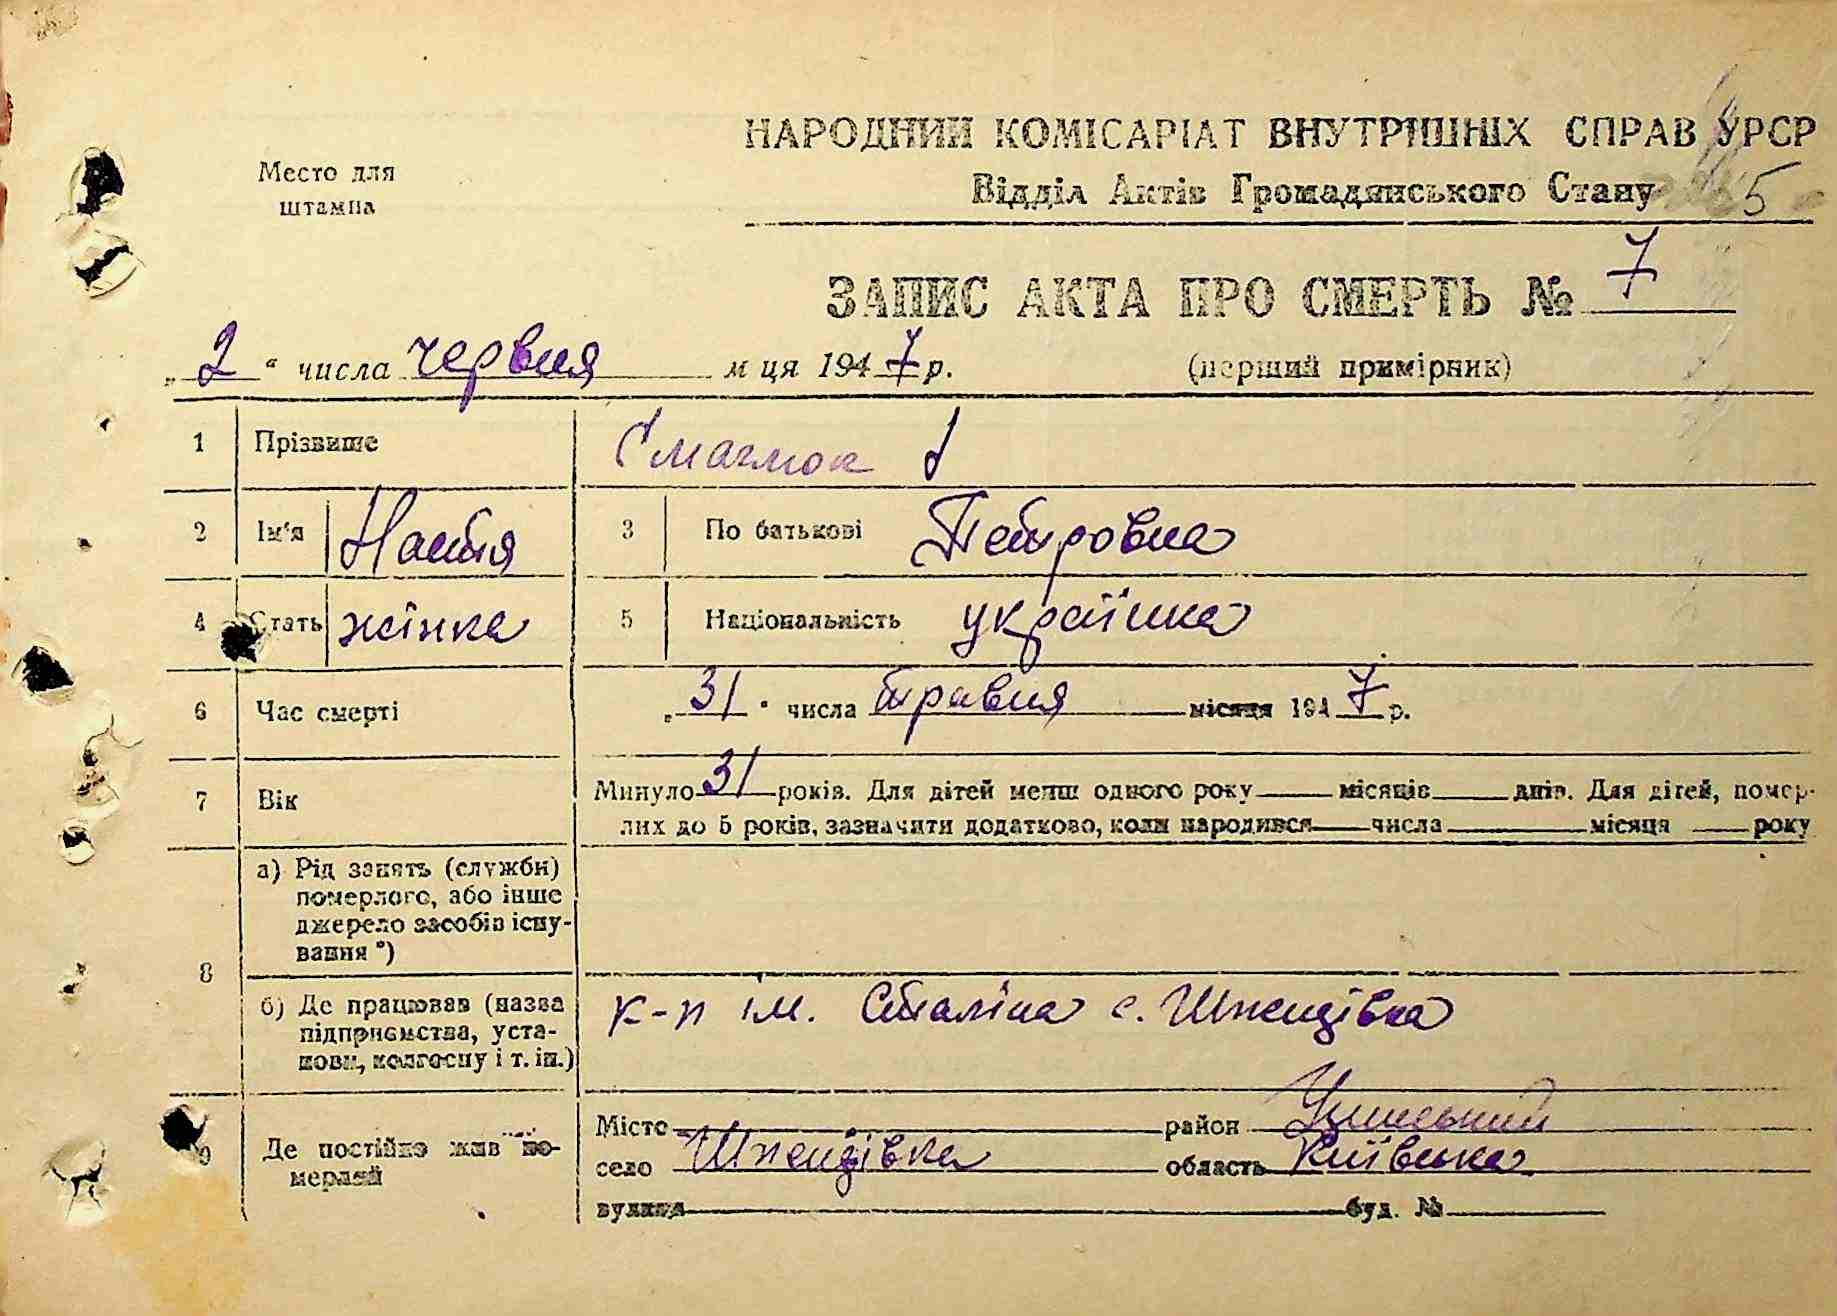 НАРОДНИЙ КОМІСАРІАТ ВНУТРІШНІХ СПРАВ УРСР
Место для
штампа
Відділ Актів Громадянського Стану
5
ЗАПИС АКТА ПРО СМЕРТЬ № 7
„2“ числа червня м ця 1947 р. (перший примірник)
1 Прізвище
2 Ім'я Настя 3 По батькові Петровна
4 Стать жінка 5 Національність українка
6 Час смерті „31“ числа травня місяця 1947 р.
7 Вік Минуло 31 років. Для дітей менш одного року місяців днів. Для дітей, помер-
лих до 5 років, зазначити додатково, коли народився числа місяця року
8 а) Рід занять (служби)
померлого, або інше
джерело засобів існу-
вання *)
б) Де працював (назва
підприємства, уста-
нови, колгоспу і т. ін.) к-п ім. Сталіна с. Шпендівка
9 Де постійно жив по-
мерлий
Місто район Узинський
село Шпендівка область Київська
вулиця буд. №